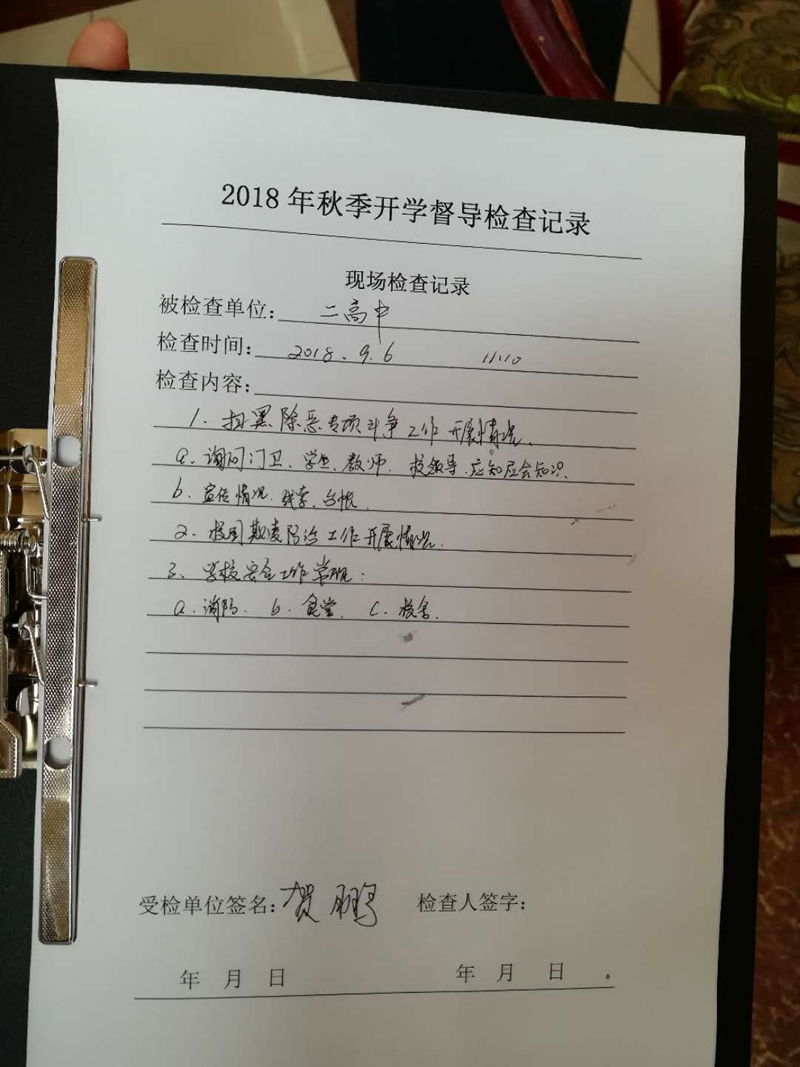 2018 年秋季开学督导检查记录
现场检查记录
被检查单位: 二高中
检查时间: 2018.9.6 11:10
检查内容:
1. 扫黑除恶专项斗争工作开展情况.
a. 询问门卫、学生、教师、校领导.应知应会知识.
b. 宣传情况.线索.台帐.
2. 校园欺凌防治工作开展情况.
3. 学校安全工作常规:
a. 消防. b. 食堂. c. 校舍.
受检单位签名: 贺鹏 检查人签字:
年 月 日 年 月 日 .